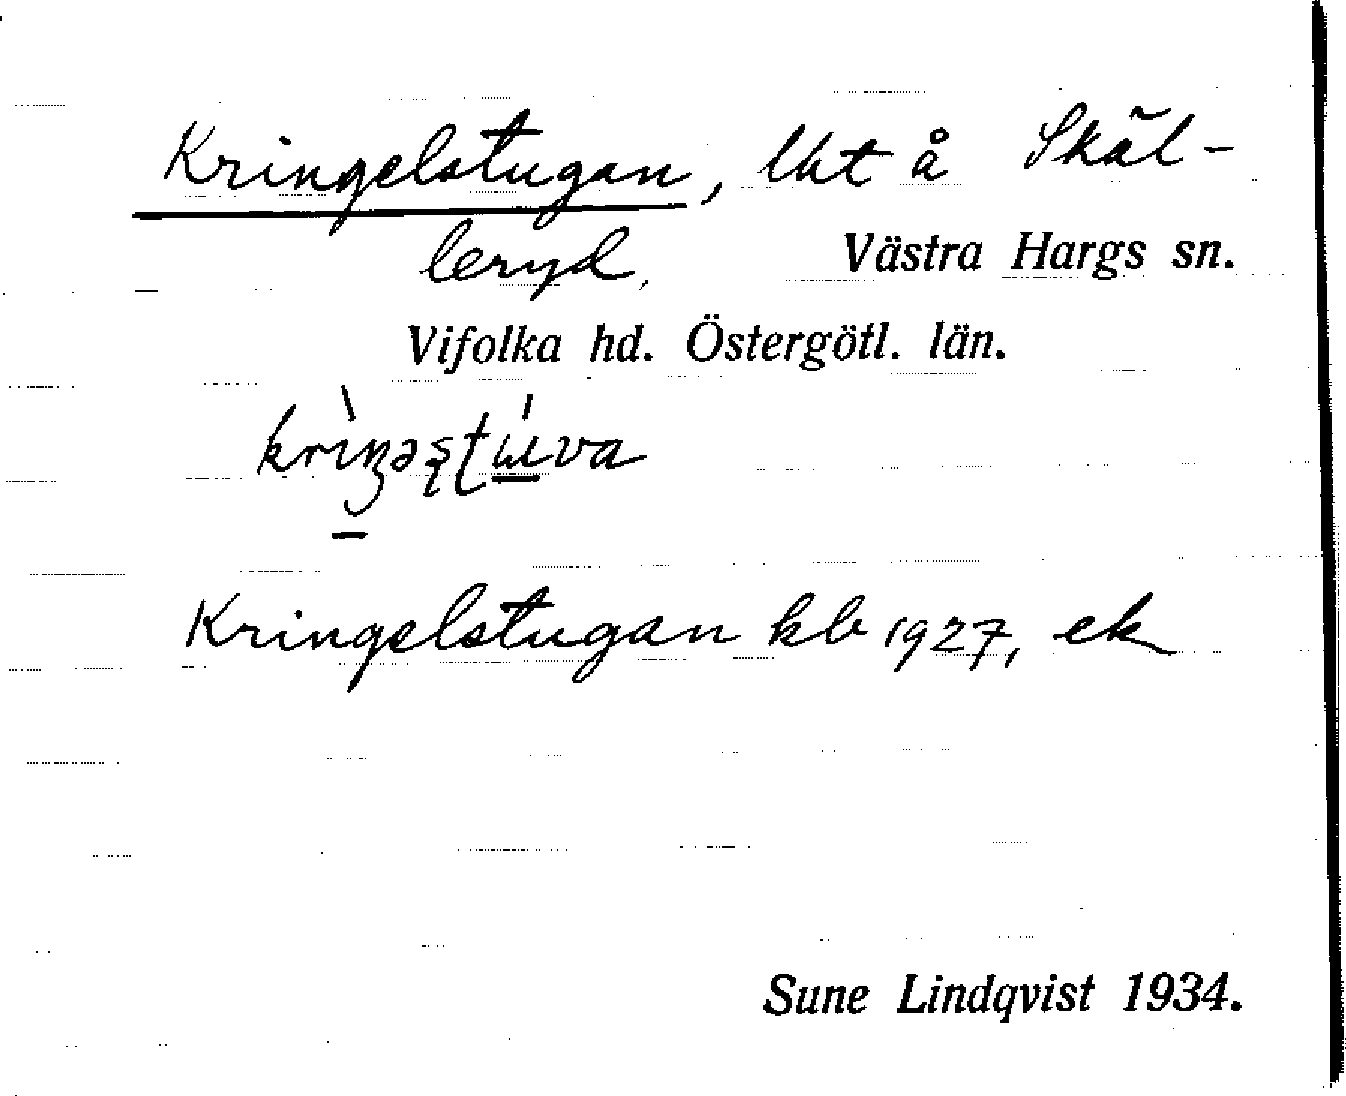 Kringelstugan, lht å Skäl-
leryd,
Västra Hargs sn.
Vifolka hd. Östergötl. län.
Kringelstugan kb 1927, ek
Sune Lindqvist 1934.